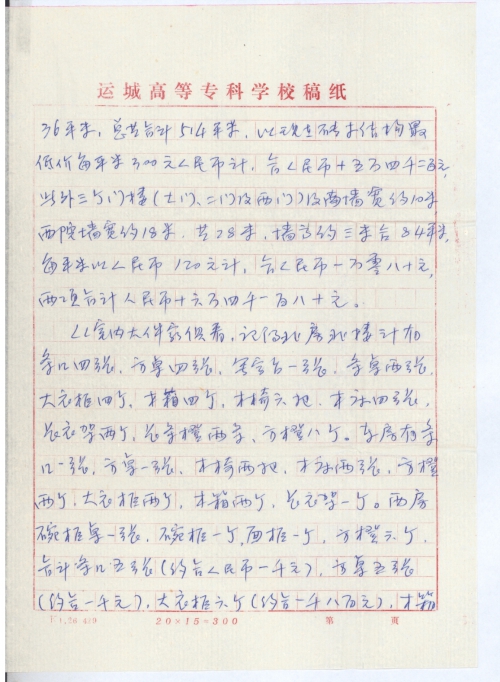 运城高等专科学校稿纸
36平米，总共合计514平米，以现在砖木结构最
低价每平米300元人民币计，合人民币十五万四千二百元，
此外三个门楼（大门、二门及西门）及南墙宽约10米
西院墙宽约18米，共28米，墙高约三米合84平米，
每平米以人民币120元计，合人民币一万零八十元，
两项合计人民币十六万四千一百八十元。
以室内大件家俱看，记得北房北楼计有
条几四张，方桌四张，立会台一张，条桌两张，
大衣柜四个，木箱四个，木椅六把，木床四张，
长衣架两个，长条橙两条，方橙八个。东房有条
几一张，方桌一张，木椅两把，木床两张，方橙
两个，大衣柜两个，木箱两个，长衣架一个。西房
碗柜桌一张，碗柜一个，面柜一个，方橙六个，
合计条几五张（约合人民币一千元），方桌五张
（约合一千元），大衣柜六个（约合一千八百元），木箱
20×15=300
第 页